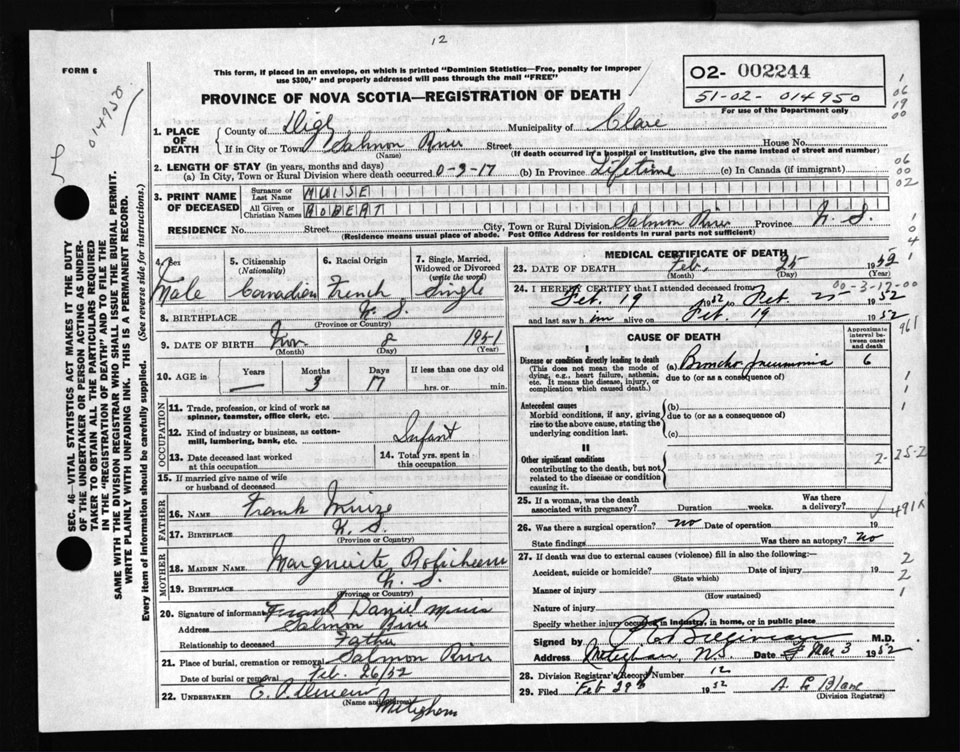 12
FORM 6
014950
This form, if placed in an envelope, on which is printed "Dominion Statistics—Free, penalty for improper
use $300," and properly addressed will pass through the mail "FREE"
02- 002244
51-02-014950
For use of the Department only
PROVINCE OF NOVA SCOTIA—REGISTRATION OF DEATH
1. PLACE OF DEATH { County of Digby Municipality of Clare
If in City or Town Salmon River Street House No.
(Name) (If death occurred in a hospital or institution, give the name instead of street and number)
2. LENGTH OF STAY (in years, months and days)
(a) In City, Town or Rural Division where death occurred 0-3-17 (b) In Province Lifetime (c) In Canada (if immigrant)
3. PRINT NAME OF DECEASED { Surname or Last Name MUISE
All Given or Christian Names ROBERT
RESIDENCE No. Street City, Town or Rural Division Salmon River Province N. S.
(Residence means usual place of abode. Post Office Address for residents in rural parts not sufficient)
4. Sex 5. Citizenship (Nationality) 6. Racial Origin 7. Single, Married, Widowed or Divorced (write the word)
Male Canadian French Single
8. BIRTHPLACE N. S.
(Province or Country)
9. DATE OF BIRTH Nov. 8 1951
(Month) (Day) (Year)
10. AGE in Years Months Days If less than one day old
— 3 17 hrs. or min.
OCCUPATION
11. Trade, profession, or kind of work as spinner, teamster, office clerk, etc.
12. Kind of industry or business, as cotton-mill, lumbering, bank, etc. Infant
13. Date deceased last worked at this occupation 14. Total yrs. spent in this occupation
15. If married give name of wife or husband of deceased
FATHER
16. NAME Frank Muise
17. BIRTHPLACE N. S.
(Province or Country)
MOTHER
18. MAIDEN NAME Marguerite
19. BIRTHPLACE N. S.
(Province or Country)
20. Signature of informant Frank Daniel Muise
Address Salmon River
Relationship to deceased Father
21. Place of burial, cremation or removal Salmon River
Date of burial or removal Feb. 26/52
22. UNDERTAKER
(Name and Address)
Meteghan
MEDICAL CERTIFICATE OF DEATH
23. DATE OF DEATH Feb. 25 1952
(Month) (Day) (Year)
24. I HEREBY CERTIFY that I attended deceased from 00-3-17-00
Feb. 19 1952 to Feb. 25 1952
and last saw h im alive on Feb. 19 1952
CAUSE OF DEATH
Approximate interval between onset and death
I
Disease or condition directly leading to death (a) Broncho pneumonia 6
(This does not mean the mode of dying, e.g., heart failure, asthenia, etc. It means the disease, injury, or complication which caused death.) due to (or as a consequence of)
Antecedent causes (b)
Morbid conditions, if any, giving rise to the above cause, stating the underlying condition last. due to (or as a consequence of)
(c)
II
Other significant conditions contributing to the death, but not related to the disease or condition causing it.
25. If a woman, was the death associated with pregnancy? Duration weeks. Was there a delivery?
26. Was there a surgical operation? no Date of operation 19
State findings Was there an autopsy? no
27. If death was due to external causes (violence) fill in also the following:—
Accident, suicide or homicide? Date of injury 19
(State which)
Manner of injury
(How sustained)
Nature of injury
Specify whether injury occurred in industry, in home, or in public place
Signed by M.D.
Address Meteghan, N.S. Date Mar 3 1952
28. Division Registrar's Record Number 12
29. Filed Feb 29th 1952 A. LeBlanc
(Division Registrar)
SEC. 46—VITAL STATISTICS ACT MAKES IT THE DUTY
OF THE UNDERTAKER OR PERSON ACTING AS UNDER-
TAKER TO OBTAIN ALL THE PARTICULARS REQUIRED
IN THE "REGISTRATION OF DEATH" AND TO FILE THE
SAME WITH THE DIVISION REGISTRAR WHO SHALL ISSUE THE BURIAL PERMIT.
WRITE PLAINLY WITH UNFADING INK. THIS IS A PERMANENT RECORD.
Every item of information should be carefully supplied. (See reverse side for instructions.)